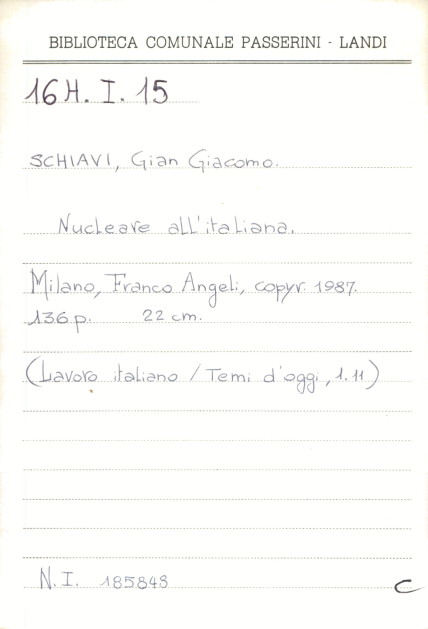 BIBLIOTECA COMUNALE PASSERINI - LANDI
16 H. I. 15
SCHIAVI, Gian Giacomo.
Nucleare all'italiana.
Milano, Franco Angeli, copyr. 1987.
136 p. 22 cm.
(Lavoro italiano / Temi d'oggi, 1.11)
N. I. 185848
C